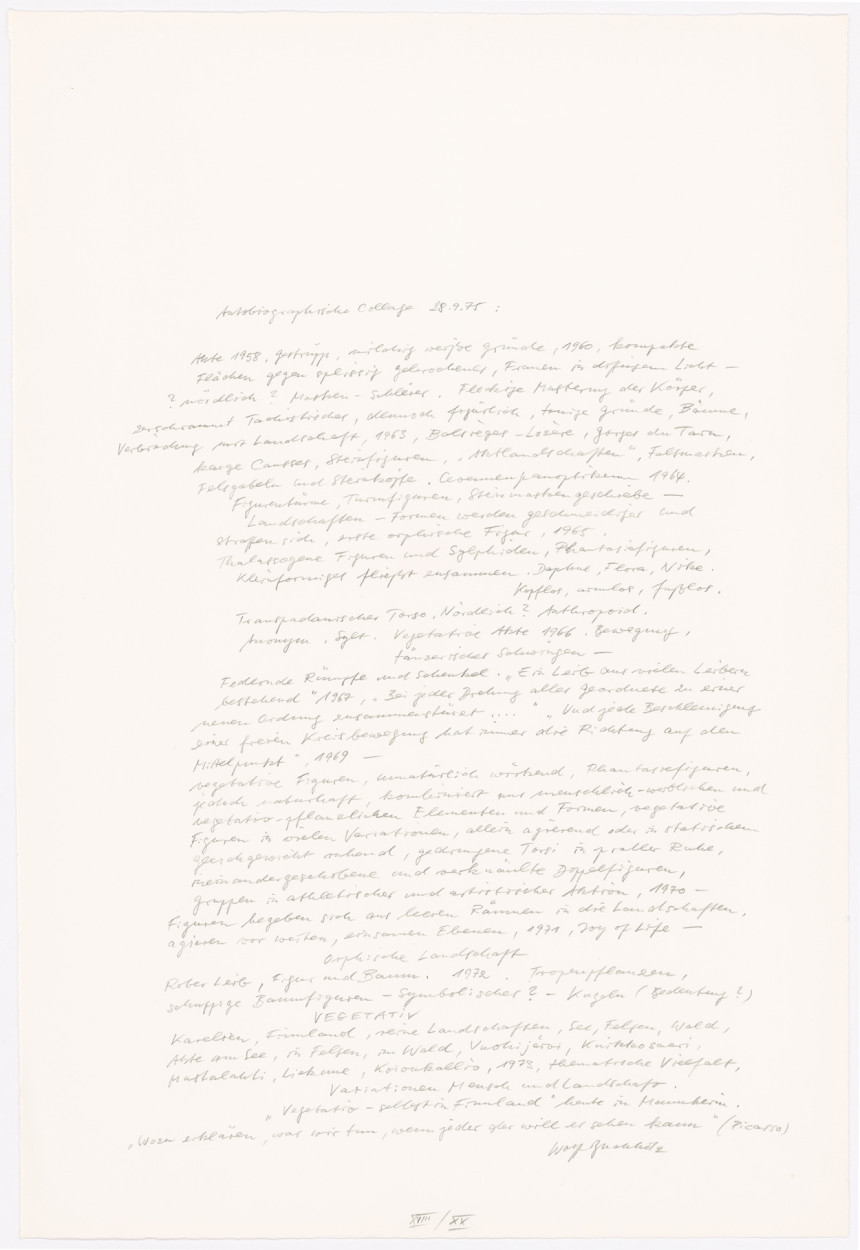 Autobiographische Collage 28.9.75 :
Akte 1958, Gestrüpp, milchig weiße Gründe, 1960, kompakte
Flächen gegen splissig gebrochenes, Frauen in diffusem Licht –
? nördlich ? Masken - Schleier. Fleckige Musterung der Körper,
zerschrammt Tachistisches, dennoch figürlich, tonige Gründe, Bäume,
Verbindung mit Landschaft, 1963, Balsièges - Lozère, Gorges du Tarn,
karge Causses, Steinfiguren, „Aktlandschaften“, Faltmasken,
Felsgabeln und Steinköpfe. Cevennenpanoptikum 1964.
Figurentürme, Turmfiguren, Steinmasken geschiebe —
Landschaften – Formen werden geschmeidiger und
straffen sich, erste orphische Figur, 1965.
Thalassogene Figuren und Sylphiden, Phantasiefiguren,
Kleinformiges fließt zusammen. Daphne, Flora, Nike.
Kopflos, armlos, fußlos.
Transpadanischer Torso. Nördlich? Anthropoid.
Anonym. Sylt. Vegetative Akte 1966. Bewegung,
tänzerisches Schwingen —
Federnde Rümpfe und Schenkel. „Ein Leib aus vielen Leibern
bestehend“ 1967, „Bei jeder Drehung alles Geordnete zu einer
neuen Ordnung zusammenstürzt ....“ „Und jede Beschleunigung
einer freien Kreisbewegung hat immer die Richtung auf den
Mittelpunkt“, 1969 —
vegetative Figuren, unnatürlich wirkend, Phantasiefiguren,
jedoch naturhaft, kombiniert aus menschlich-weiblichen und
vegetativ-pflanzlichen Elementen und Formen, vegetative
Figuren in vielen Variationen, allein agierend oder in statischem
Gleichgewicht ruhend, gedrungene Torsi in praller Ruhe,
ineinandergeschobene und verknäulte Doppelfiguren,
Gruppen in athletischer und artistischer Aktion, 1970 —
Figuren begeben sich aus leeren Räumen in die Landschaften,
agieren vor weiten, einsamen Ebenen, 1971, Joy of Life —
Orphische Landschaft
Roter Leib, Figur und Baum. 1972. Tropenpflanzen,
schuppige Baumfiguren – Symbolisches? – Kugeln (Bedeutung?)
VEGETATIV
Karelien, Finnland, reine Landschaften, See, Felsen, Wald,
Akte am See, in Felsen, im Wald, Vuohijärvi,
1973, thematische Vielfalt,
Variationen Mensch und Landschaft.
„Vegetativ – selbst in Finnland“ heute in Mannheim.
„Wozu erklären, was wir tun, wenn jeder der will es sehen kann“ (Picasso)
XVIII / XX